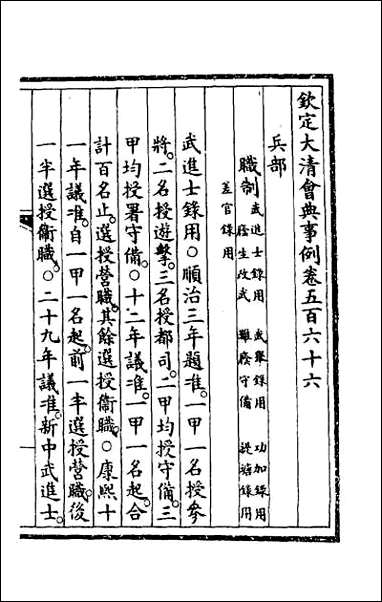 欽定大清會典事例卷五百六十六
兵部
職制武進士錄用 武舉錄用 功加錄用
蔭生改武 難蔭守備 提塘錄用
差官錄用
武進士錄用○順治三年題准一甲一名授參
將二名授遊擊三名授都司二甲均授守備三
甲均授署守備○十二年議准一甲一名起合
計百名止選授營職其餘選授衞職○康熙十
一年議准自一甲一名起前一半選授營職後
一半選授衞職○二十九年議准新中武進士